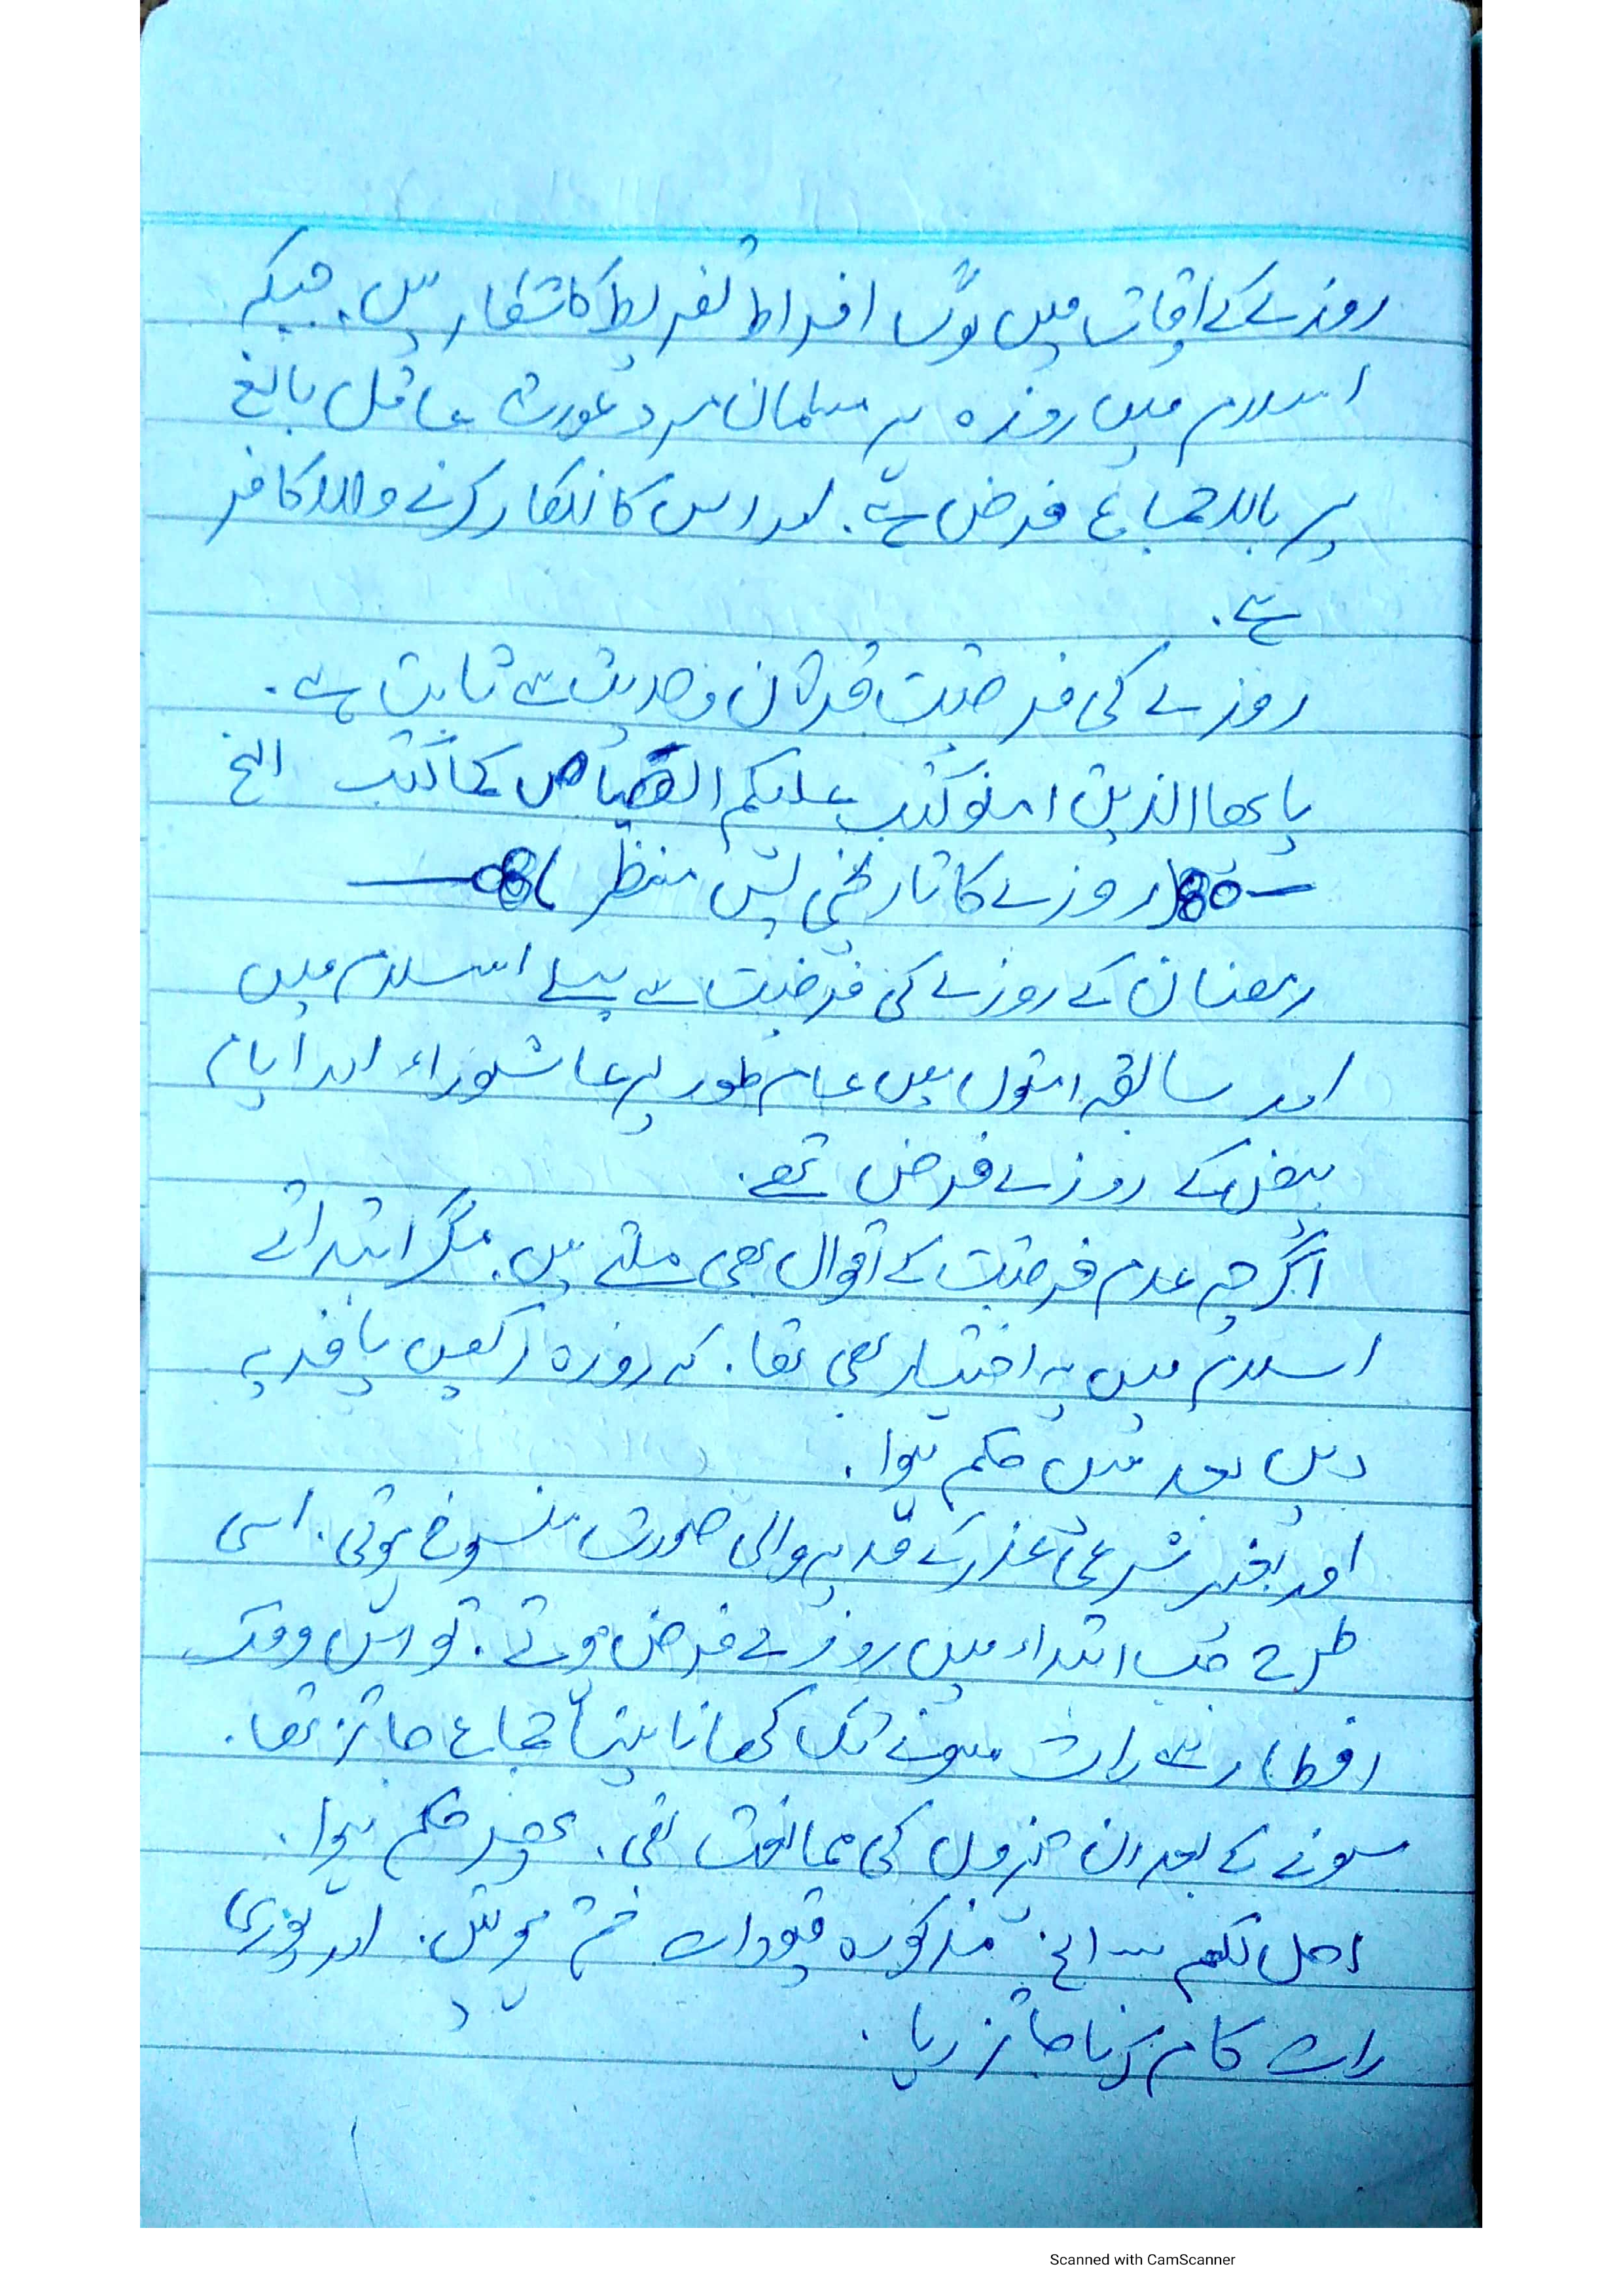 روزے کے اوقات میں لوگ افراط تفریط کا شکار ہیں۔ جبکہ
اسلام میں روزہ ہر مسلمان مرد عورت عاقل بالغ
پر بالاجماع فرض ہے۔ اور اس کا انکار کرنے والا کافر
ہے۔
روزے کی فرضیت قرآن و حدیث سے ثابت ہے۔
یایھا الذین امنو کتب علیکم الصیام کما کتب الخ
روزے کا تاریخی پس منظر
رمضان کے روزے کی فرضیت سے پہلے اسلام میں
اور سابقہ امتوں میں عام طور پر عاشوراء اور ایام
بیض کے روزے فرض تھے۔
اگرچہ عدم فرضیت کے اقوال بھی ملتے ہیں۔ مگر ابتدائے
اسلام میں یہ اختیار بھی تھا۔ کہ روزہ رکھیں یا فدیہ
دیں بعد میں حکم ہوا۔
اور بغیر شرعی عذر کے فدیہ والی صورت منسوخ ہوئی۔ اسی
طرح جب ابتداء میں روزے فرض ہوئے۔ تو اس وقت
افطار سے رات سونے تک کھانا پینا جماع جائز تھا۔
سونے کے بعد ان چیزوں کی ممانعت تھی۔ پھر حکم ہوا۔
احل لکم الخ مذکورہ قیودات ختم ہوئیں۔ اور پوری
رات کام کرنا جائز رہا۔
Scanned with CamScanner